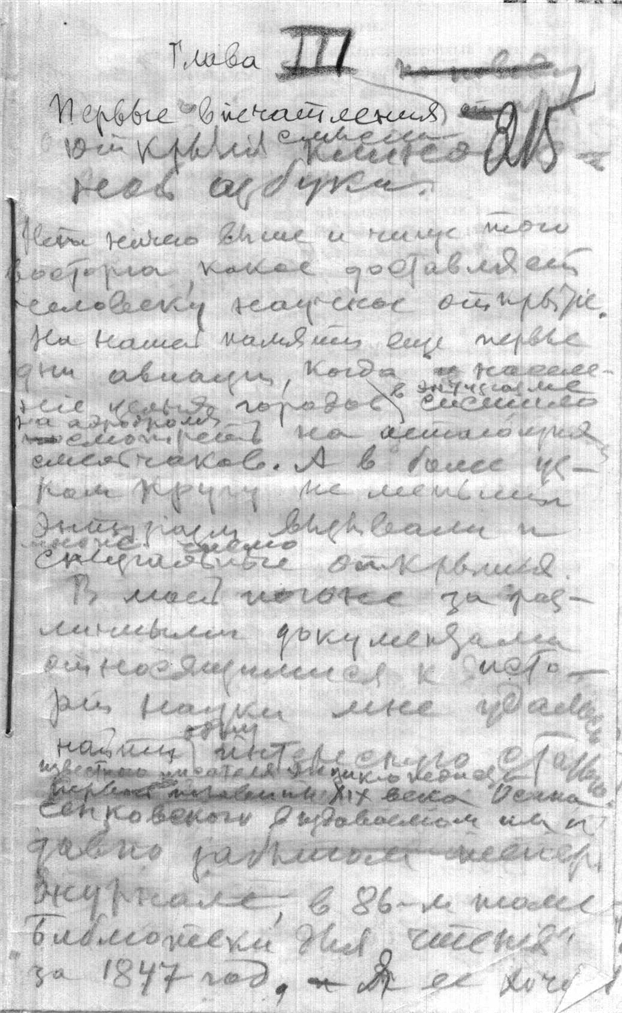 Глава III
215
Первые впечатления
от крыльев смысла клино-
ной азбуки.
Нет ничего выше и чище того
восторга, какое доставляет
человеку научное открытие.
На нашей памяти еще первые
дни авиации, когда населе-
ние целых городов в энтузиазме
на аэродромы
смотреть на летающих
смельчаков. А в более уз-
ком кругу не меньший
энтузиазм вызывали и
чисто научные открытия.
В моей погоне за раз-
личными документами
относящимися к исто-
рии науки мне удалось
найти одну интересную статью
известного писателя энциклопедиста
первой половины XIX века Осипа
Сенковского в издаваемом им и
давно забытом теперь
журнале, в 86-м томе
"Библиотеки для чтения"
за 1847 год, Я ее хочу